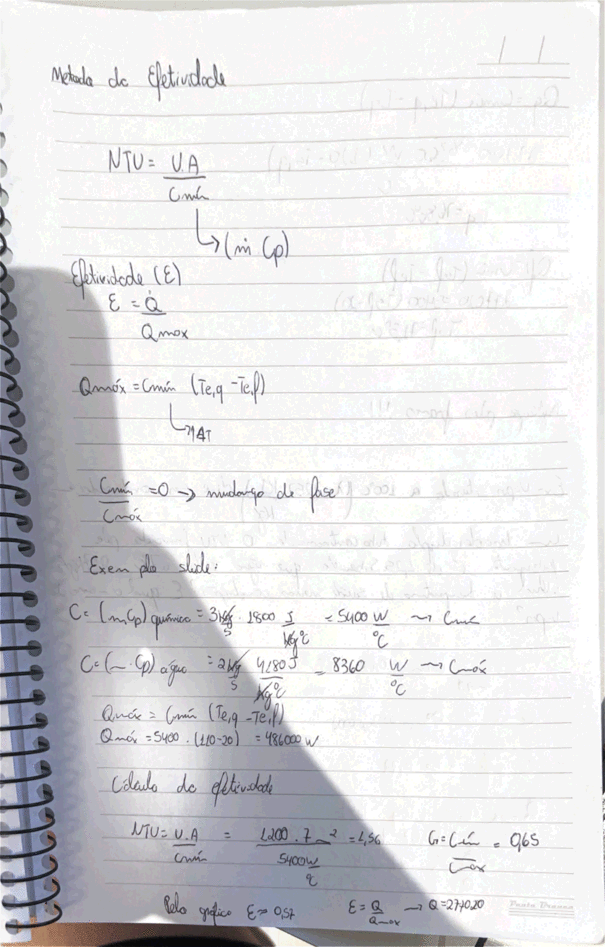 Método da Efetividade
NTU = U.A
Cmín
(ṁ Cp)
Efetividade (E)
E = Q̇
Qmax
Qmáx = Cmín (Te,q - Te,f)
ΔT
Cmín = 0 → mudança de fase
Cmáx
Exemplo slide:
C = (mCp) químico = 3 kg/s . 1800 J/kg°C = 5400 W/°C → Cmín
C = (m . Cp) água = 2 kg/s 4180 J/kg°C = 8360 W/°C → Cmáx
Qmáx = Cmín (Te,q - Te,f)
Qmáx = 5400 . (110-20) = 486000 W
Cálculo da efetividade
NTU = U.A = 1200 . 7 m² = 1,56 G = Cmín = 0,65
Cmín 5400W Cmáx
°C
Pelo gráfico E ≈ 0,57 E = Q/Qmax → Q = 277020